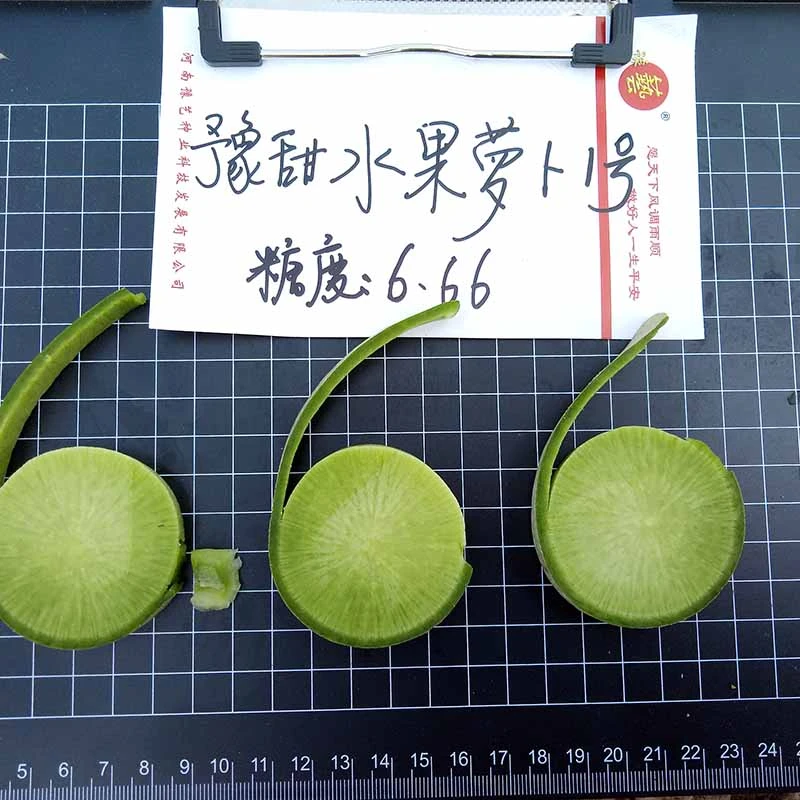 豫甜水果萝卜1号
糖度:6.66
河南豫艺种业科技发展有限公司
豫藝
®
愿天下风调雨顺
做好人一生平安
5 6 7 8 9 10 11 12 13 14 15 16 17 18 19 20 21 22 23 24